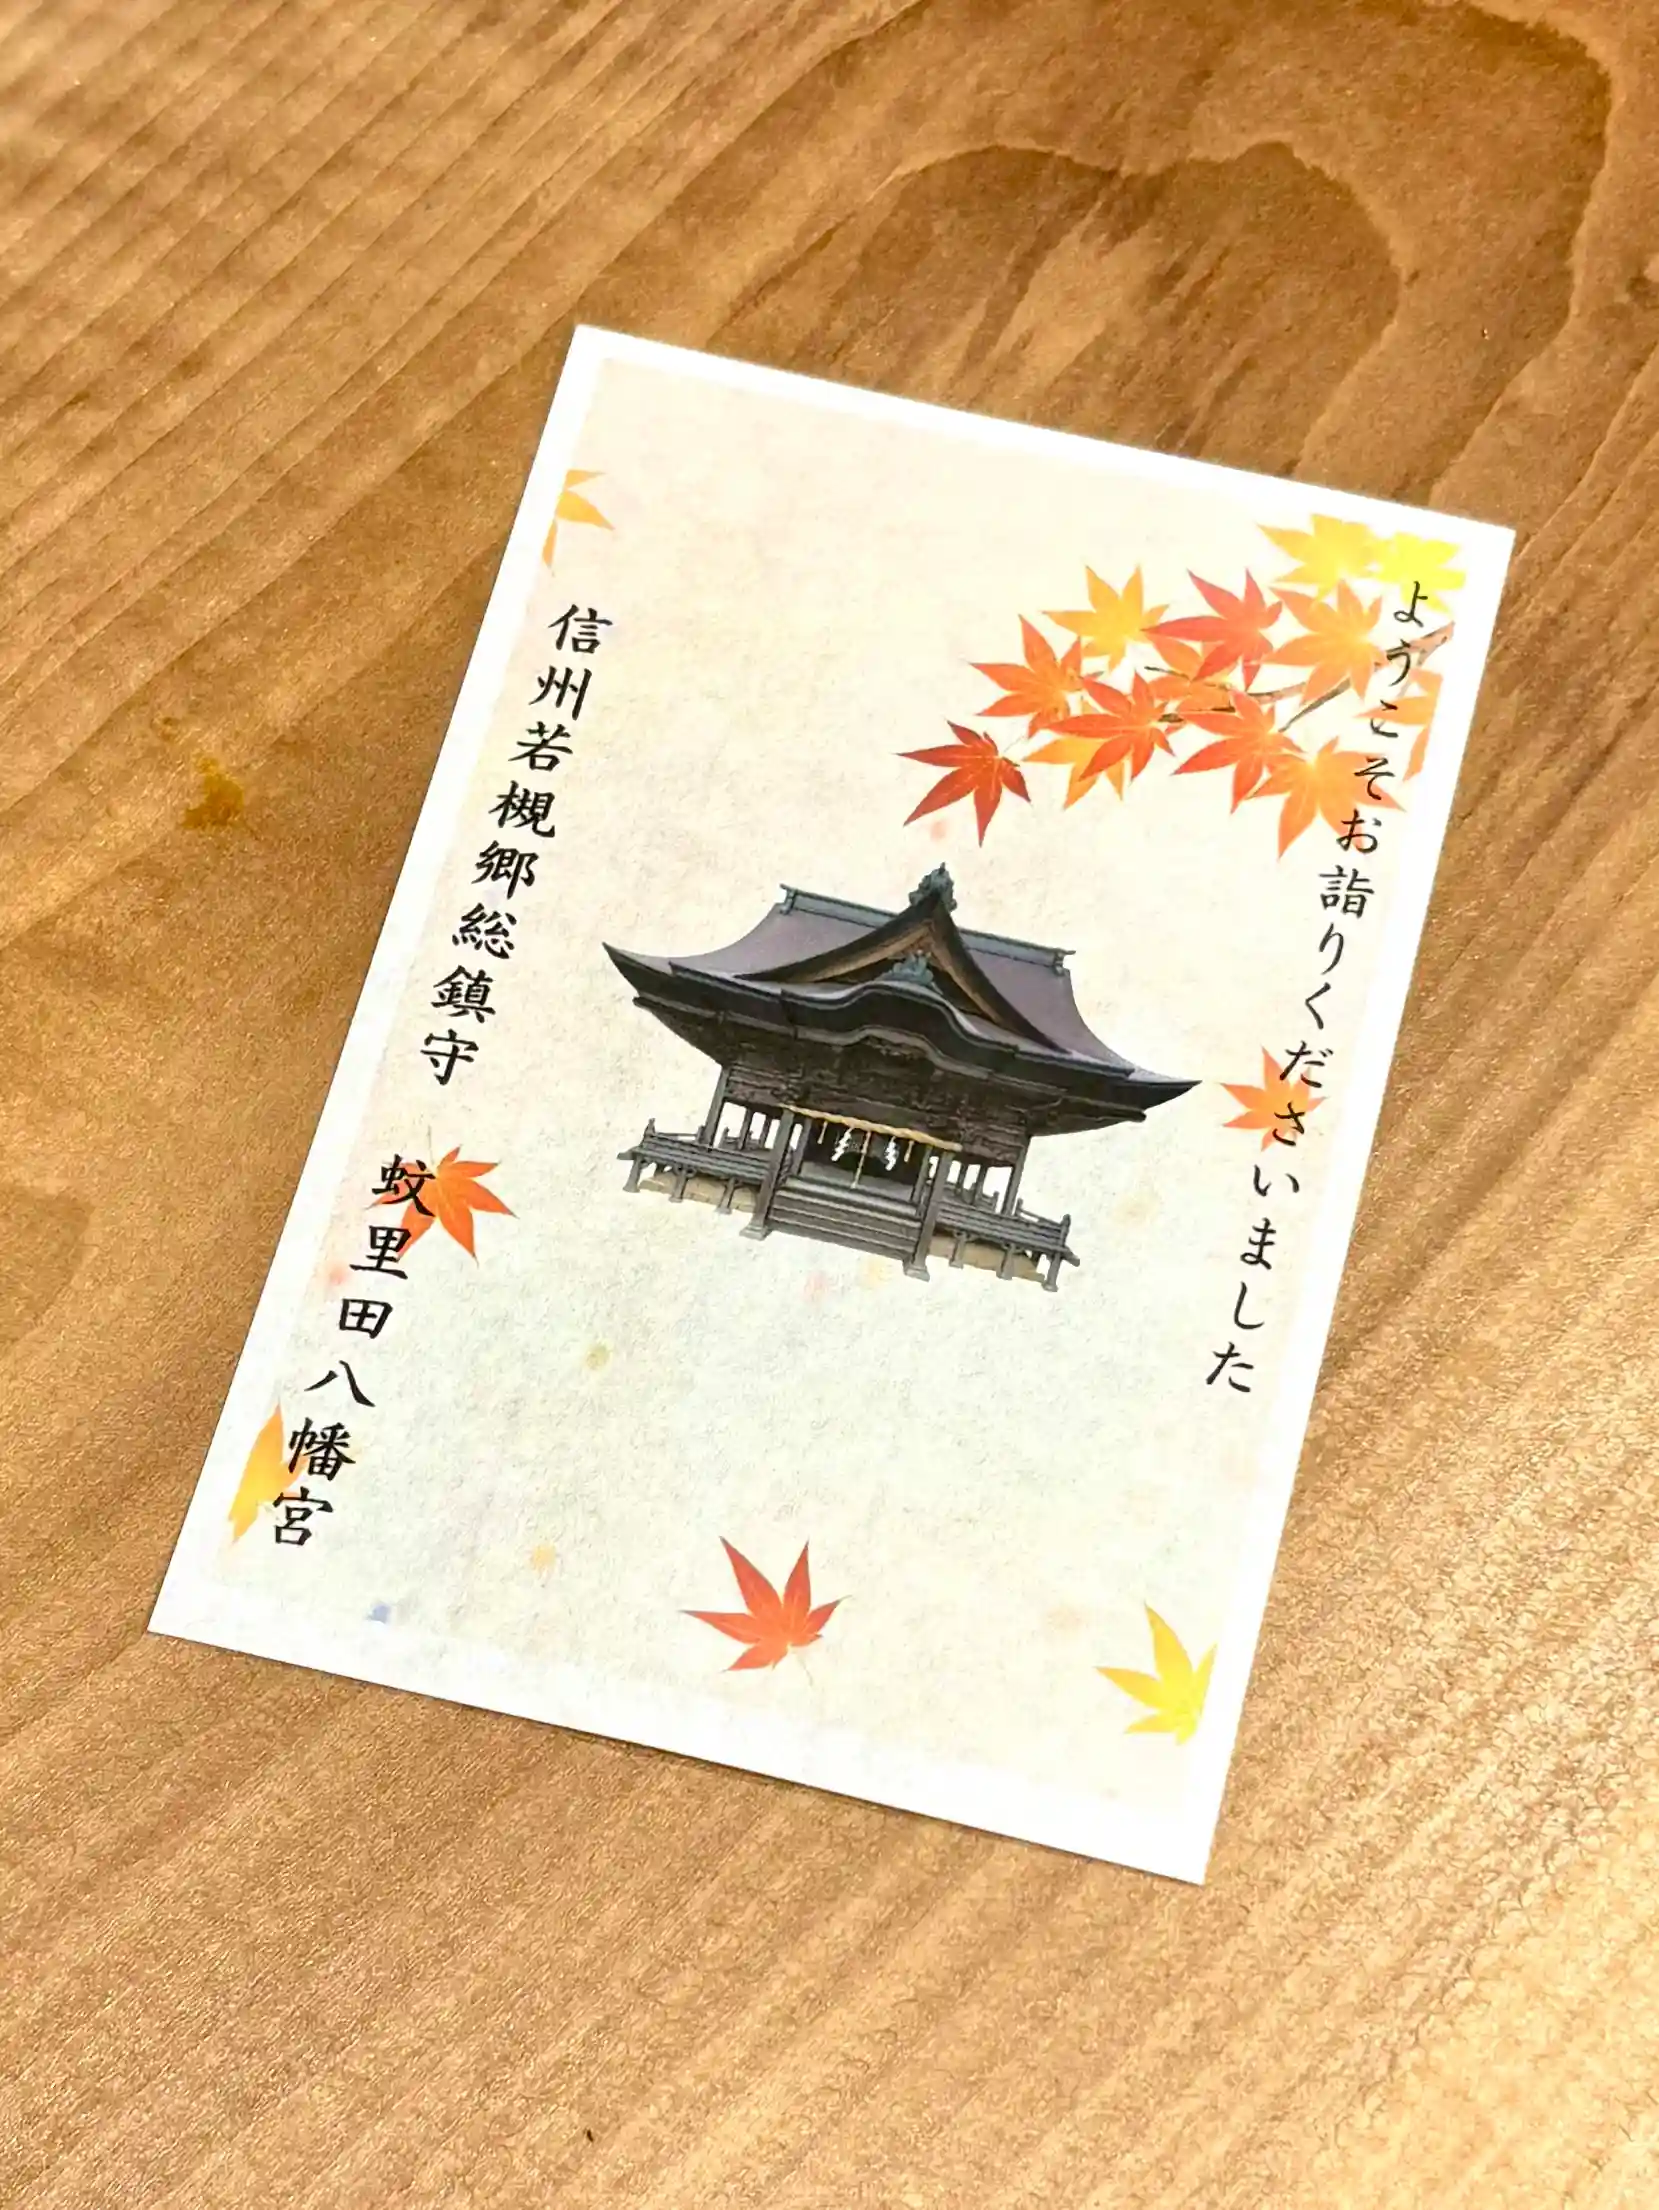 ようこそお詣りくださいました
信州若槻郷総鎮守　蚊里田八幡宮